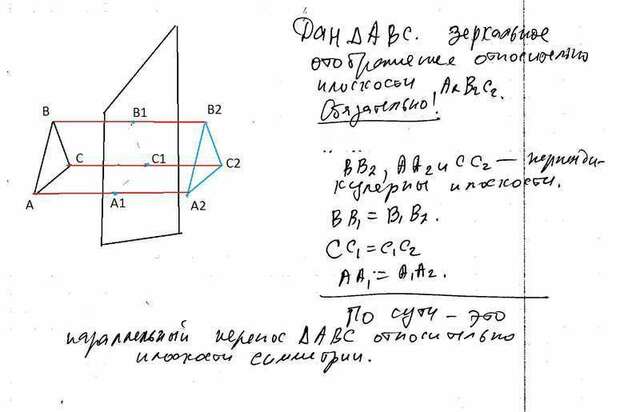 B
B1
B2
C
C1
C2
A
A1
A2
Дан ΔABC. зеркальное
отображение относительно
плоскости A₂B₂C₂.
Обязательно!
BB₂, AA₂ и CC₂ — перпенди-
кулярны плоскости.
BB₁ = B₁B₂.
CC₁ = C₁C₂
AA₁ = A₁A₂.
По сути – это
параллельный перенос ΔABC относительно
плоскости симметрии.